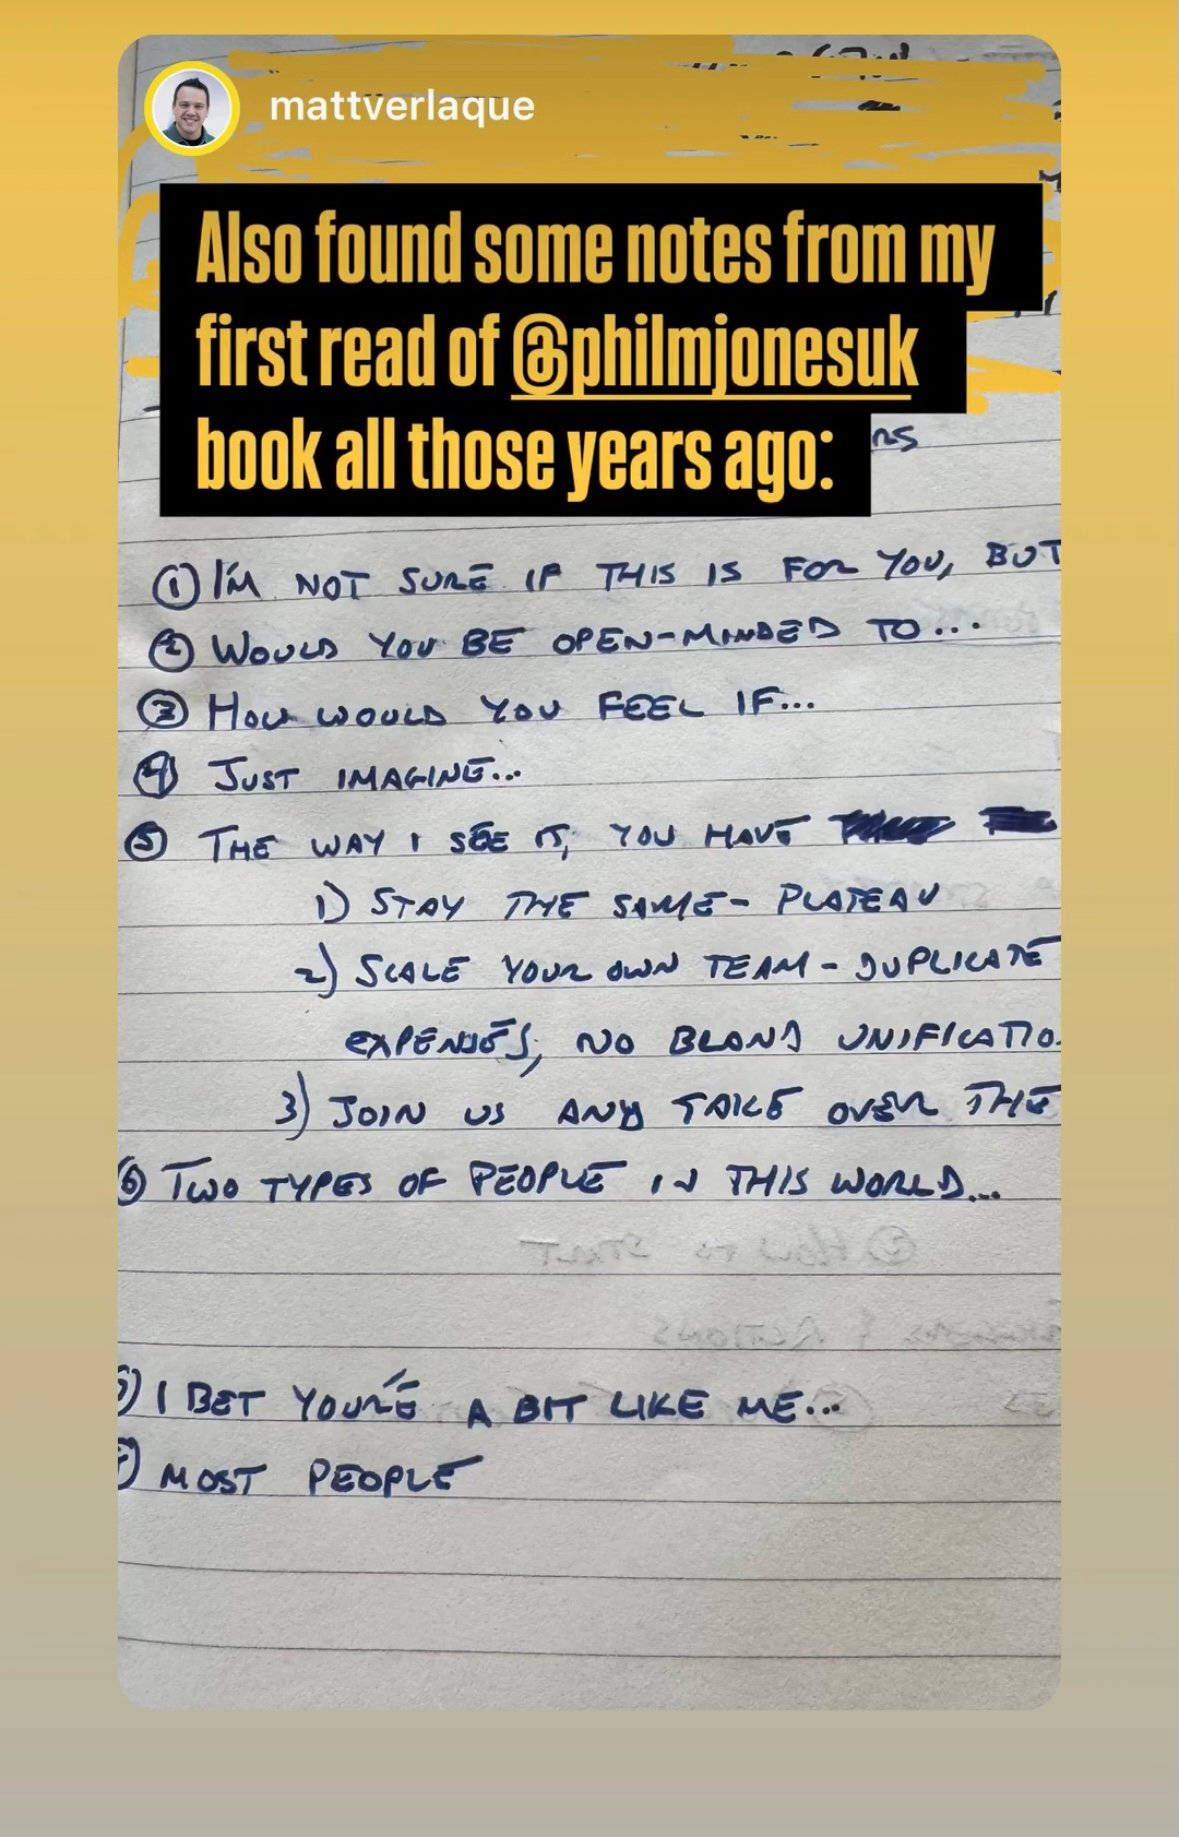 mattverlaque
Also found some notes from my
first read of @philmjonesuk
book all those years ago:
① I'M NOT SURE IF THIS IS FOR YOU, BUT
② WOULD YOU BE OPEN-MINDED TO...
③ HOW WOULD YOU FEEL IF...
④ JUST IMAGINE...
⑤ THE WAY I SEE IT, YOU HAVE
1) STAY THE SAME - PLATEAU
2) SCALE YOUR OWN TEAM - DUPLICATE
EXPENSES, NO BRAND UNIFICATIO
3) JOIN US AND TAKE OVER THE
⑥ TWO TYPES OF PEOPLE IN THIS WORLD...
② HOW TO START
& ACTIONS
) I BET YOU'RE A BIT LIKE ME...
) MOST PEOPLE